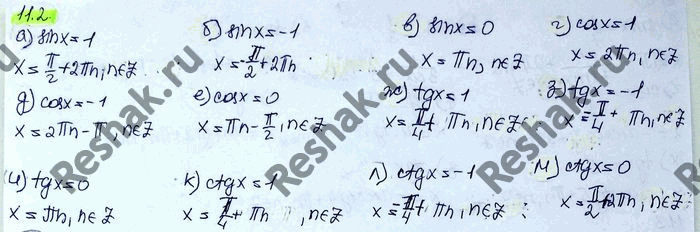 11.2.
а) sinx=1
x=π/2+2πn, n∈Z
б) sinx=-1
x=-π/2+2πn
в) sinx=0
x=πn, n∈Z
г) cosx=1
x=2πn, n∈Z
д) cosx=-1
x=2πn-π, n∈Z
е) cosx=0
x=πn-π/2, n∈Z
ж) tgx=1
x=π/4+πn, n∈Z
з) tgx=-1
x=-π/4+πn, n∈Z
и) tgx=0
x=πn, n∈Z
к) ctgx=1
x=π/4+πn, n∈Z
л) ctgx=-1
x=-π/4+πn, n∈Z
м) ctgx=0
x=π/2+2πn, n∈Z
Reshak.ru
Reshak.ru
Reshak.ru
Reshak.ru